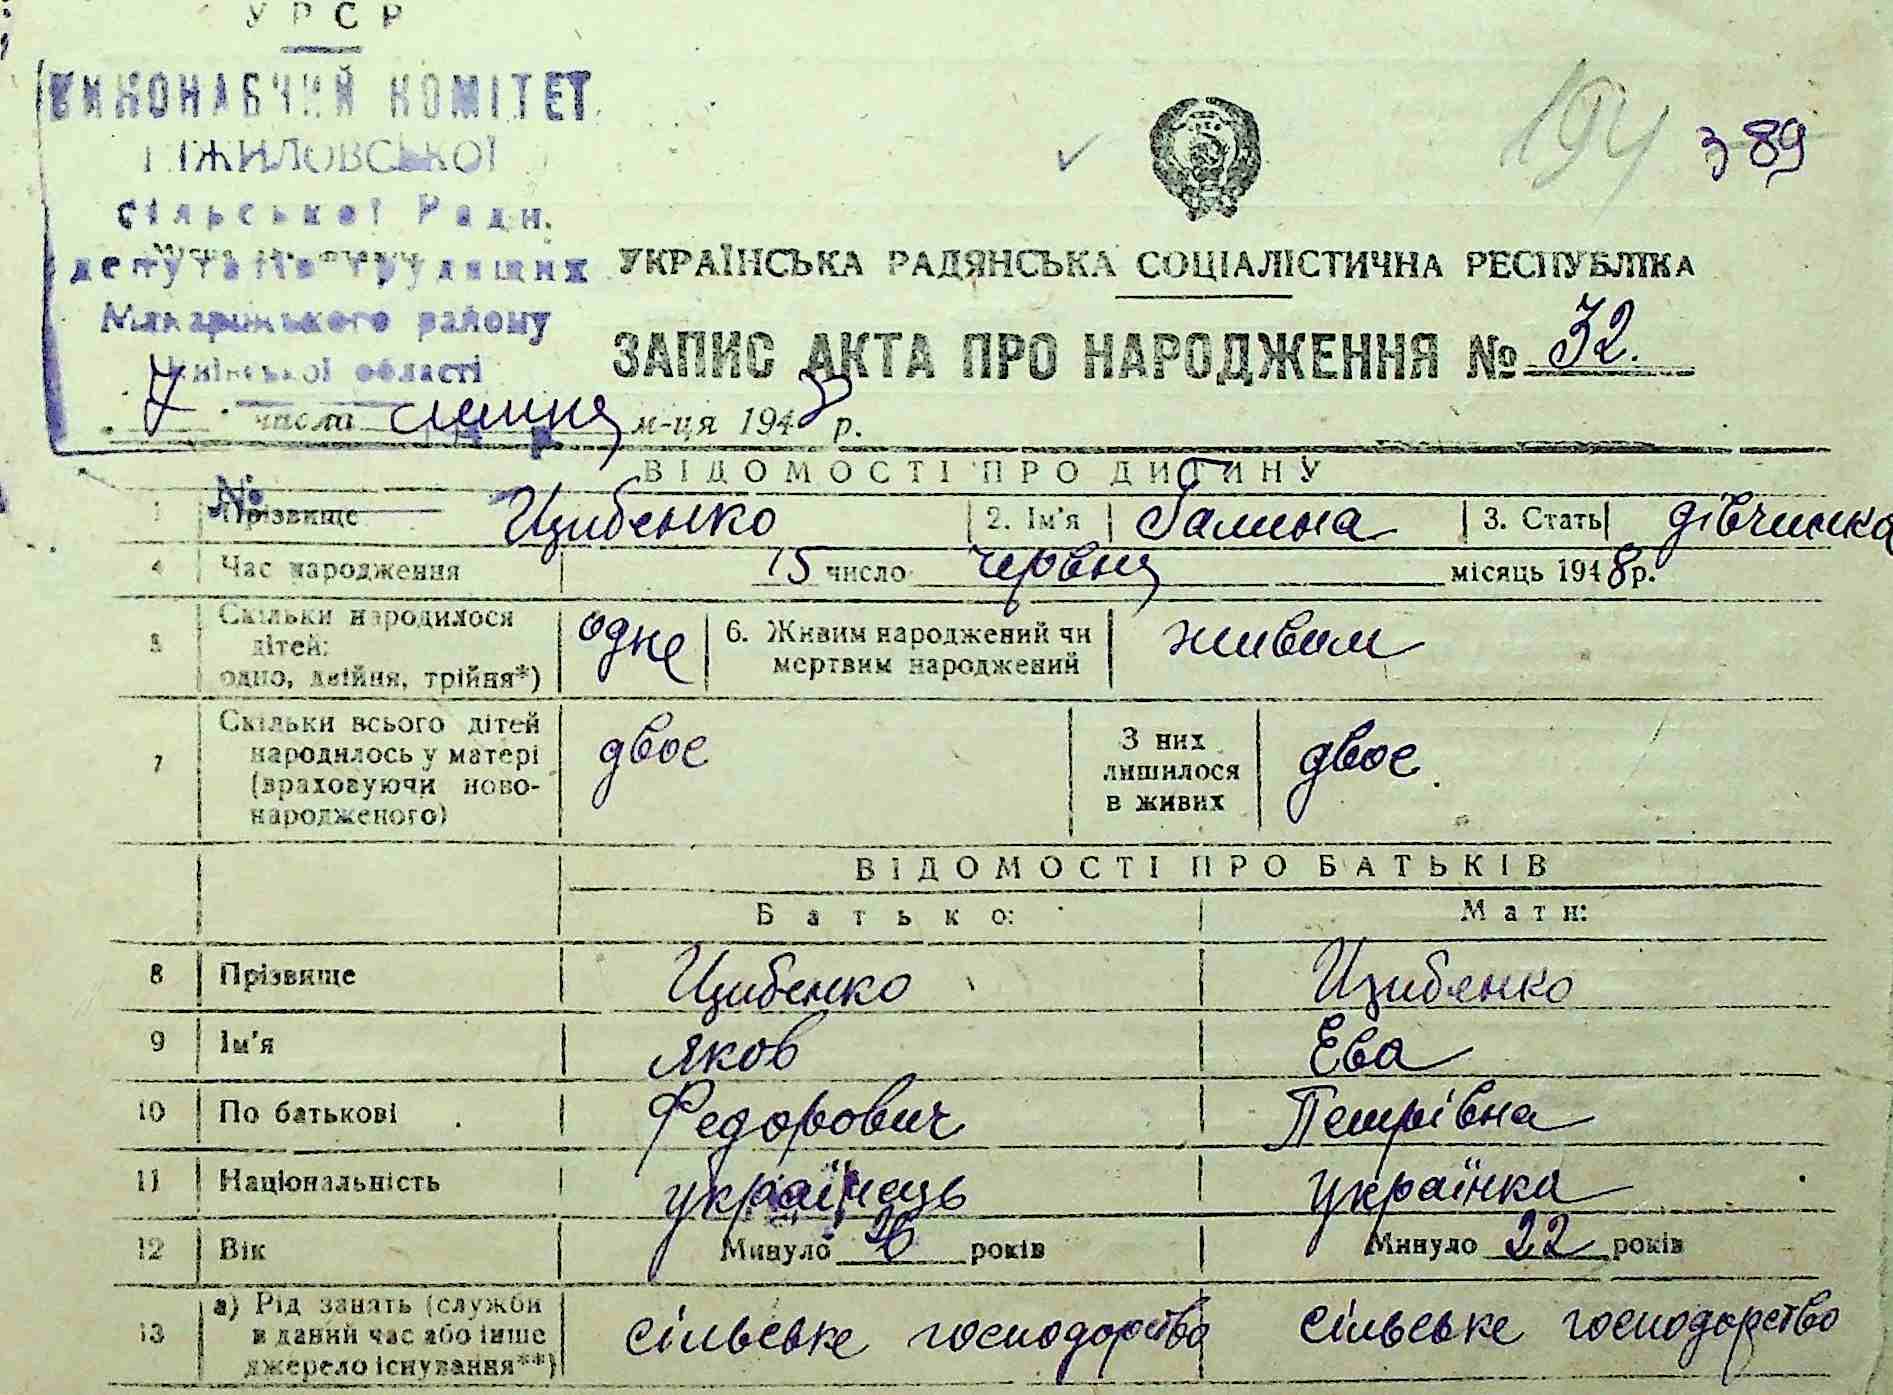 УРСР
ВИКОНАВЧИЙ КОМІТЕТ
ІЖИЛОВСЬКОЇ
сільської Ради
депутатів трудящих
Макарівського району
Київської області
194 з 89
УКРАЇНСЬКА РАДЯНСЬКА СОЦІАЛІСТИЧНА РЕСПУБЛІКА
ЗАПИС АКТА ПРО НАРОДЖЕННЯ № 32.
7 числа липня м-ця 194 р.
ВІДОМОСТІ ПРО ДИТИНУ
№
1 Прізвище Цибенко 2. Ім'я Галина 3. Стать дівчинка
4 Час народження 15 число червня місяць 1948 р.
5 Скільки народилося дітей: одно, двійня, трійня*) одне 6. Живим народжений чи мертвим народжений живим
7 Скільки всього дітей народилось у матері (враховуючи ново-народженого) двоє З них лишилося в живих двоє.
ВІДОМОСТІ ПРО БАТЬКІВ
Батько: Мати:
8 Прізвище Цибенко Цибенко
9 Ім'я Яков Ева
10 По батькові Федорович Петрівна
11 Національність українець українка
12 Вік Минуло 26 років Минуло 22 років
13 а) Рід занять (служби в даний час або інше джерело існування**) сільське господорство сільське господорство